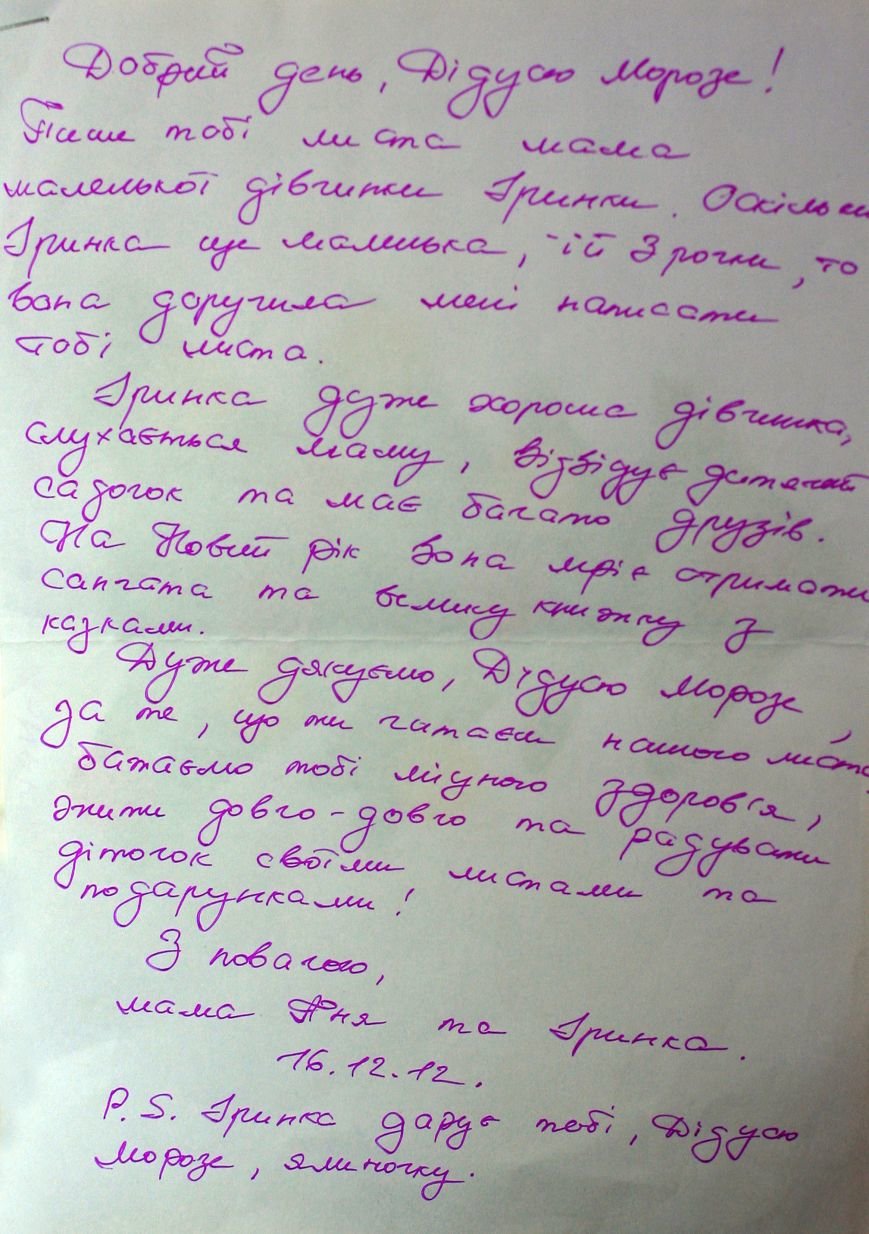 Добрий день, Дідусю Морозе!
Пише тобі листа мама
маленької дівчинки Іринки. Оскільки
Іринка ще маленька, їй 3 рочки, то
вона доручила мені написати
тобі листа.
Іринка дуже хороша дівчинка,
слухається маму, відвідує дитячий
садочок та має багато друзів.
На Новий рік вона мріє отримати
санчата та велику книжку з
казками.
Дуже дякуємо, Дідусю Морозе,
за те, що ти читаєш нашого листа,
бажаємо тобі міцного здоров'я,
жити довго-довго та радувати
діточок своїми листами та
подарунками!
З повагою,
мама Яня та Іринка.
16.12.12.
P.S. Іринка дарує тобі, Дідусю
Морозе, ялиночку.